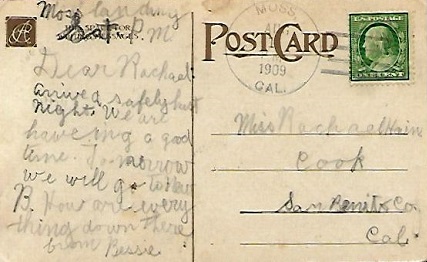 Moss Landing
Sat. P.M
Dear Rachael:
arrived safely last
night. We are
having a good
time. Tomorrow
we will go to
B. How are every
thing down there
from Bessie
POST CARD
MOSS
1909
CAL.
U.S. POSTAGE
ONE CENT
Miss Rachael
Cook
San Benito Co
Cal.